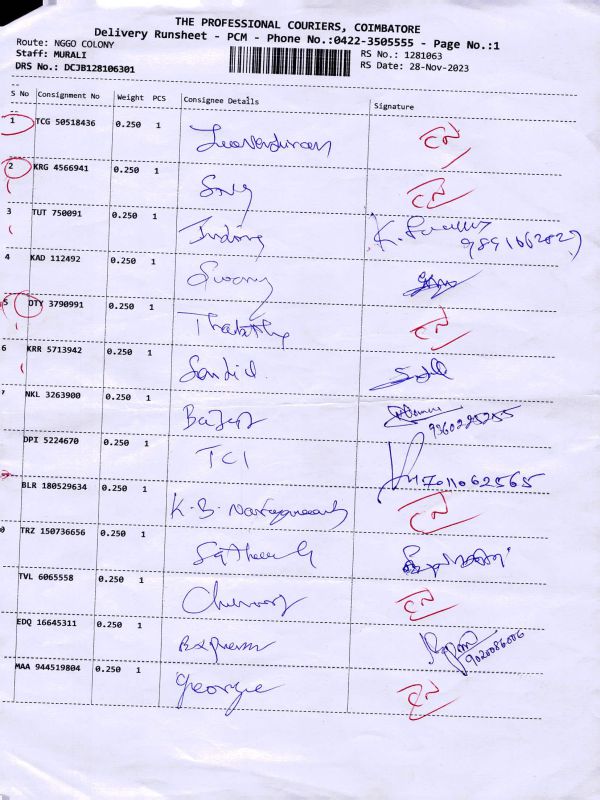 THE PROFESSIONAL COURIERS, COIMBATORE
Delivery Runsheet - PCM - Phone No.:0422-3505555 - Page No.:1
Route: NGGO COLONY RS No.: 1281063
Staff: MURALI RS Date: 28-Nov-2023
DRS No.: DCJB128106301
S No Consignment No Weight PCS Consignee Details Signature
1 TCG 50518436 0.250 1
2 KRG 4566941 0.250 1 Sony
3 TUT 750091 0.250 1
4 KAD 112492 0.250 1 Swamy
5 OTY 3790991 0.250 1
6 KRR 5713942 0.250 1
7 NKL 3263900 0.250 1 Bajaj
9360225255
DPI 5224670 0.250 1 TCI 7011062565
BLR 180529634 0.250 1
0 TRZ 150736656 0.250 1
TVL 6065558 0.250 1
EDQ 16645311 0.250 1
9020086006
MAA 944519804 0.250 1 George